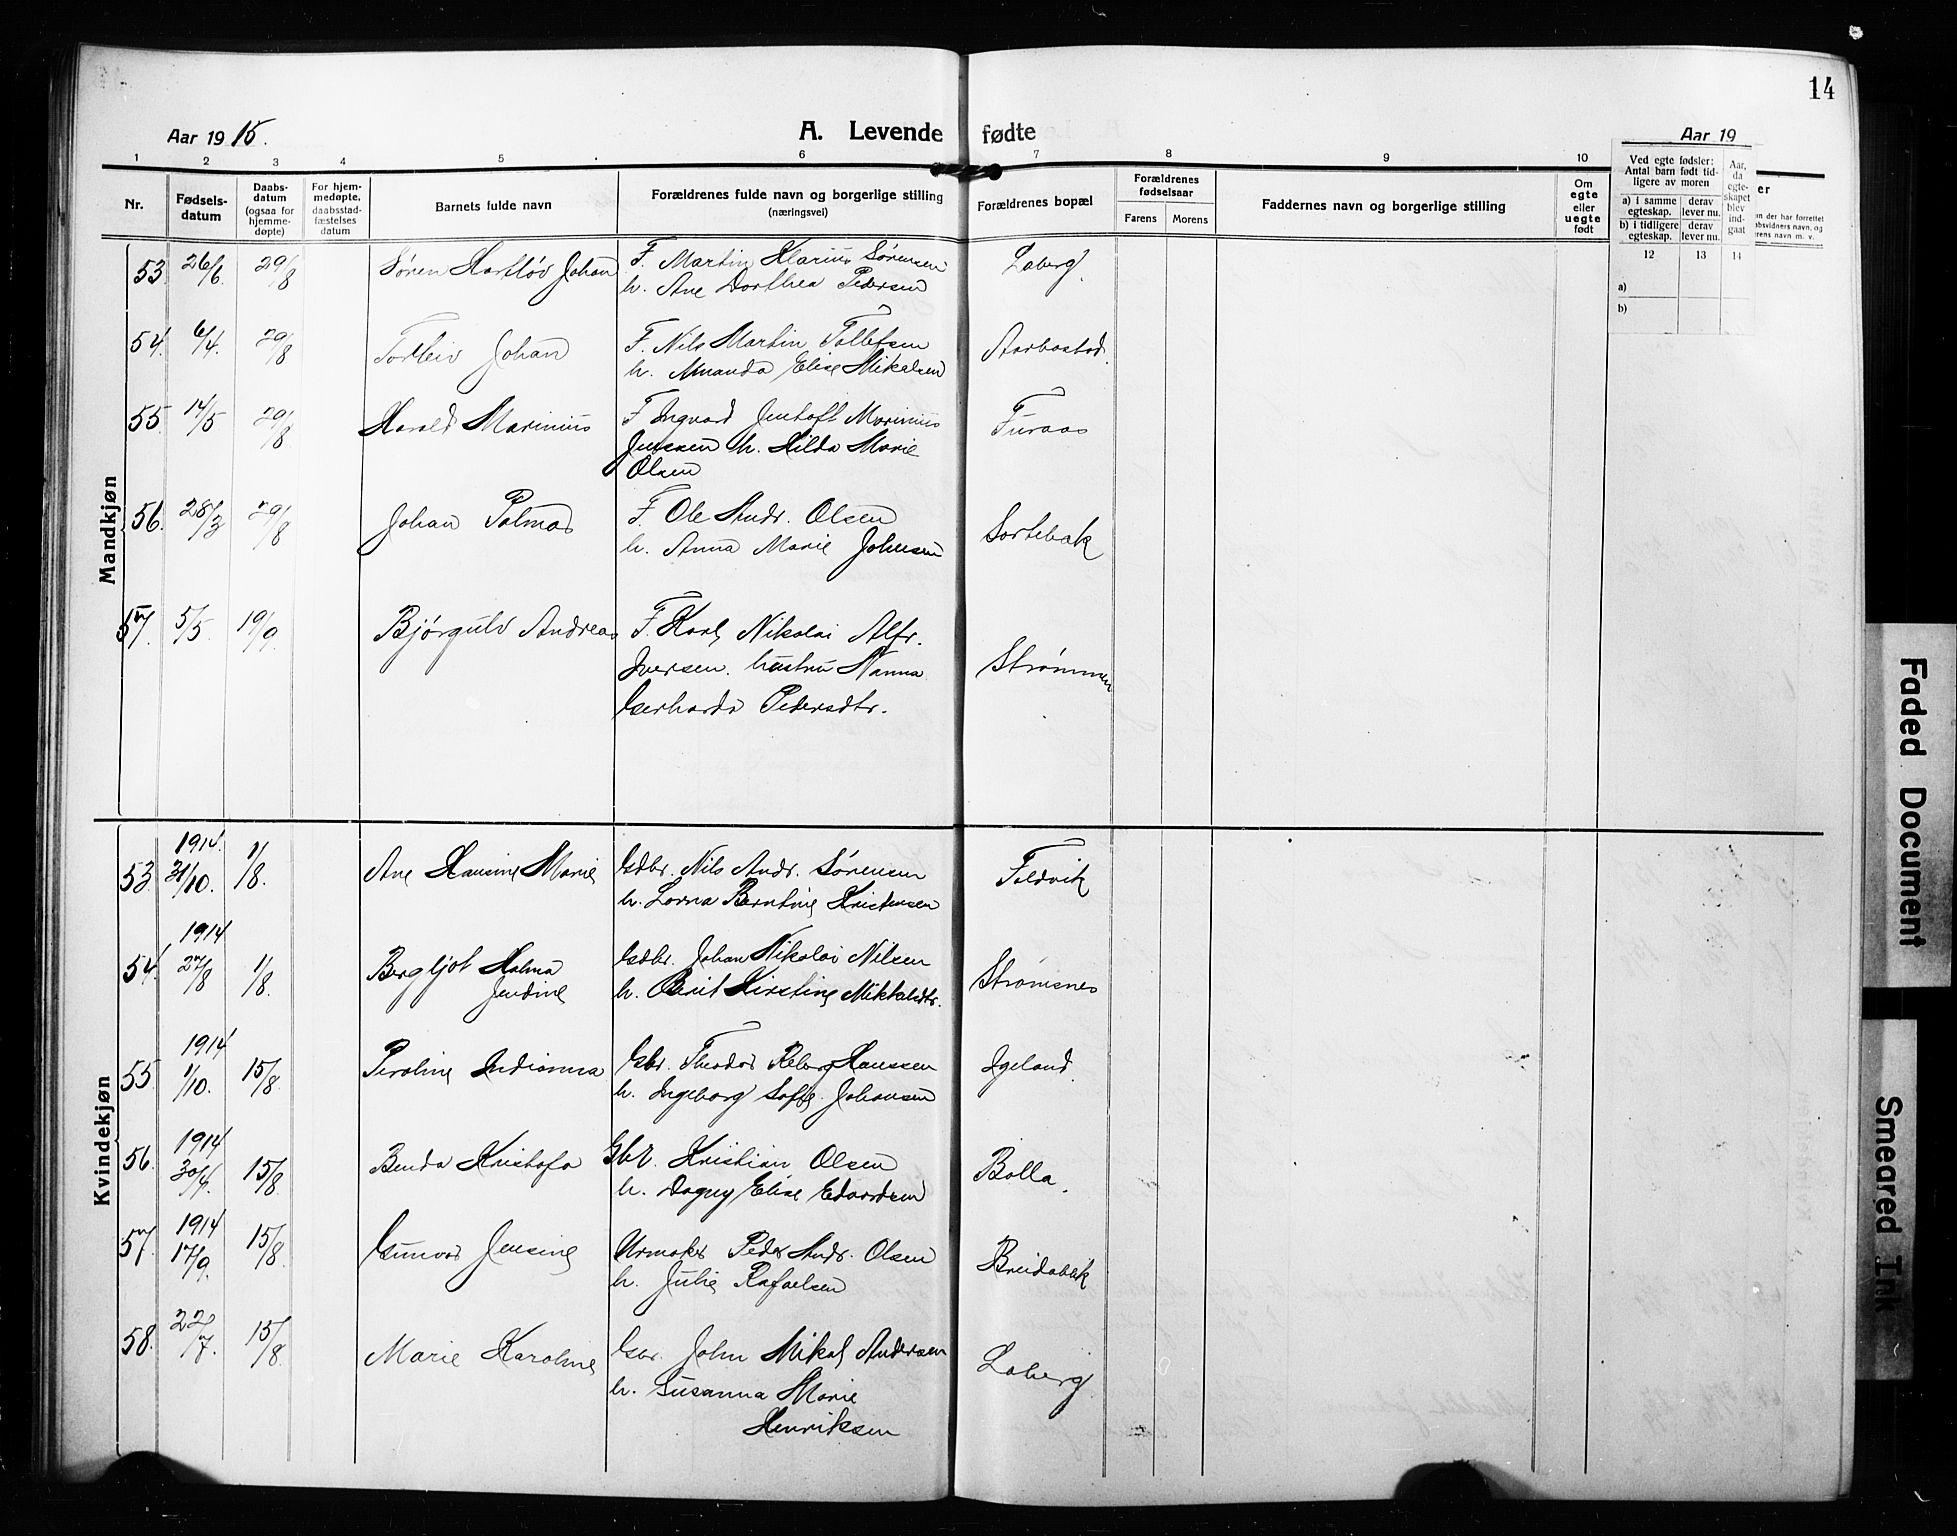 14
Aar 1915.
A. Levende fødte
Aar 19
1 2 3 4 5 6 7 8 9 10
Nr.
Fødsels-
datum
Daabs-
datum
(ogsaa for
hjemme-
døpte)
For hjem-
medøpte,
daabsstad-
fæstelses
datum
Barnets fulde navn
Forældrenes fulde navn og borgerlige stilling
(næringsvei)
Forældrenes bopæl
Forældrenes
fødselsaar
Farens Morens
Faddernes navn og borgerlige stilling
Om
egte
eller
uegte
født
Ved egte fødsler:
Antal barn født tid-
ligere av moren
a) i samme
egteskap.
derav
lever nu.
b) i tidligere
egteskap.
derav
lever nu.
Aar,
da
egte-
skapet
blev
ind-
gaat
12 13 14
a)
b)
Mandkjøn
53 26/6. 29/8 Søren Hartløv Johan F. Martin Klarius Sørensen Laberg.
h. Ane Dorthea Pedersen
54. 6/4. 29/8 Torleiv Johan F. Nils Martin Tollefsen Aarbostad.
h. Amanda Elise Mikalsen
55. 14/5 29/8 Harald Marinius F. Ingvard Jentoft Marinius Furaas
Jenssen h. Hilda Marie
Olsen
56. 28/3 29/8 Johan Palmar F. Ole Andr. Olsen Sortebak
h. Anna Marie Johnsen
57. 5/5. 19/9. Bjørgulv Andreas F. Karl Nikolai Alfr.
Iversen. hustru Nanna Strømmen
Gerharda Pedersdtr.
Kvindekjøn
1914.
53 31/10. 1/8. Ane Hansine Marie Gdbr. Nils Andr. Sørensen Foldvik
h. Lorna Berntine Kristensen
1914
54. 27/8 1/8. Bergljot Halma Gdbr. Johan Nikolai Nilsen Strømsnes
Jendine h. Berit Kirstine Mikkalsdtr.
1914
55. 1/10. 15/8. Peroline Indianna Gbr. Theodor Reberg Hanssen Igeland.
h. Ingeborg Sofie Johansen
1914
56. 30/4. 15/8 Benda Kristofa Gbr. Kristian Olsen Bolla.
h. Dagny Elise Edvardsen
1914
57. 17/9. 15/8. Gunvor Jensine Urmaker Peder Andr. Olsen Breidablik
h. Julie Rafaelsen
58. 22/7. 15/8. Marie Karoline Gbr. John Mikal Andersen Laberg
h. Susanna Marie
Henriksen
Faded Document
Smeared Ink